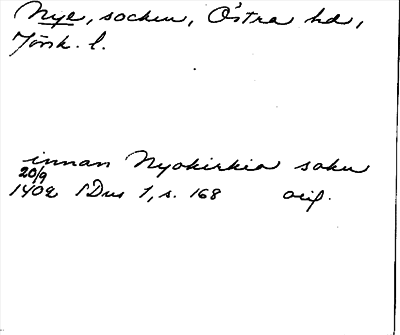 Nye, socken, Östra hd,
Jönk. l.
innan Nyakirkia sokn
20/9
1402 SDns 1, s. 168 orig.